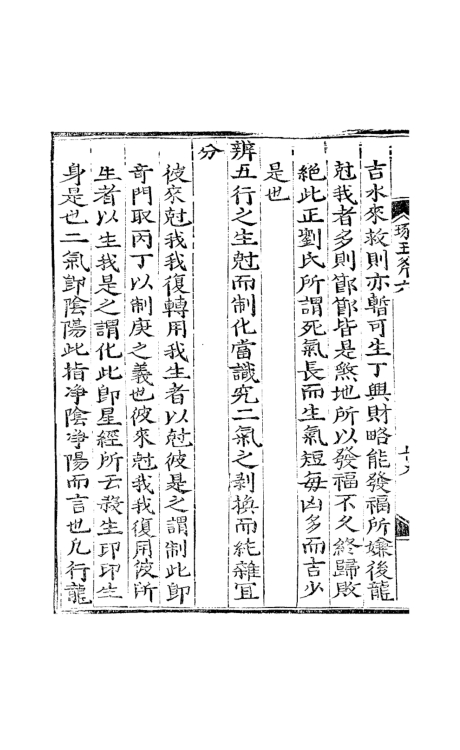 琢玉斧六
吉水來救則亦暫可生丁興財略能發福所嫌後龍
尅我者多則節節皆是煞地所以發福不久終歸敗
絶此正劉氏所謂死氣長而生氣短每凶多而吉少
是也
辨五行之生尅而制化當識究二氣之剥換而純雜宜
分
彼來尅我我復轉用我生者以尅彼是之謂制此卽
奇門取丙丁以制庚之義也彼來尅我我復用彼所
生者以生我是之謂化此卽星經所云殺生印印生
身是也二氣卽陰陽此指凈陰凈陽而言也凡行龍